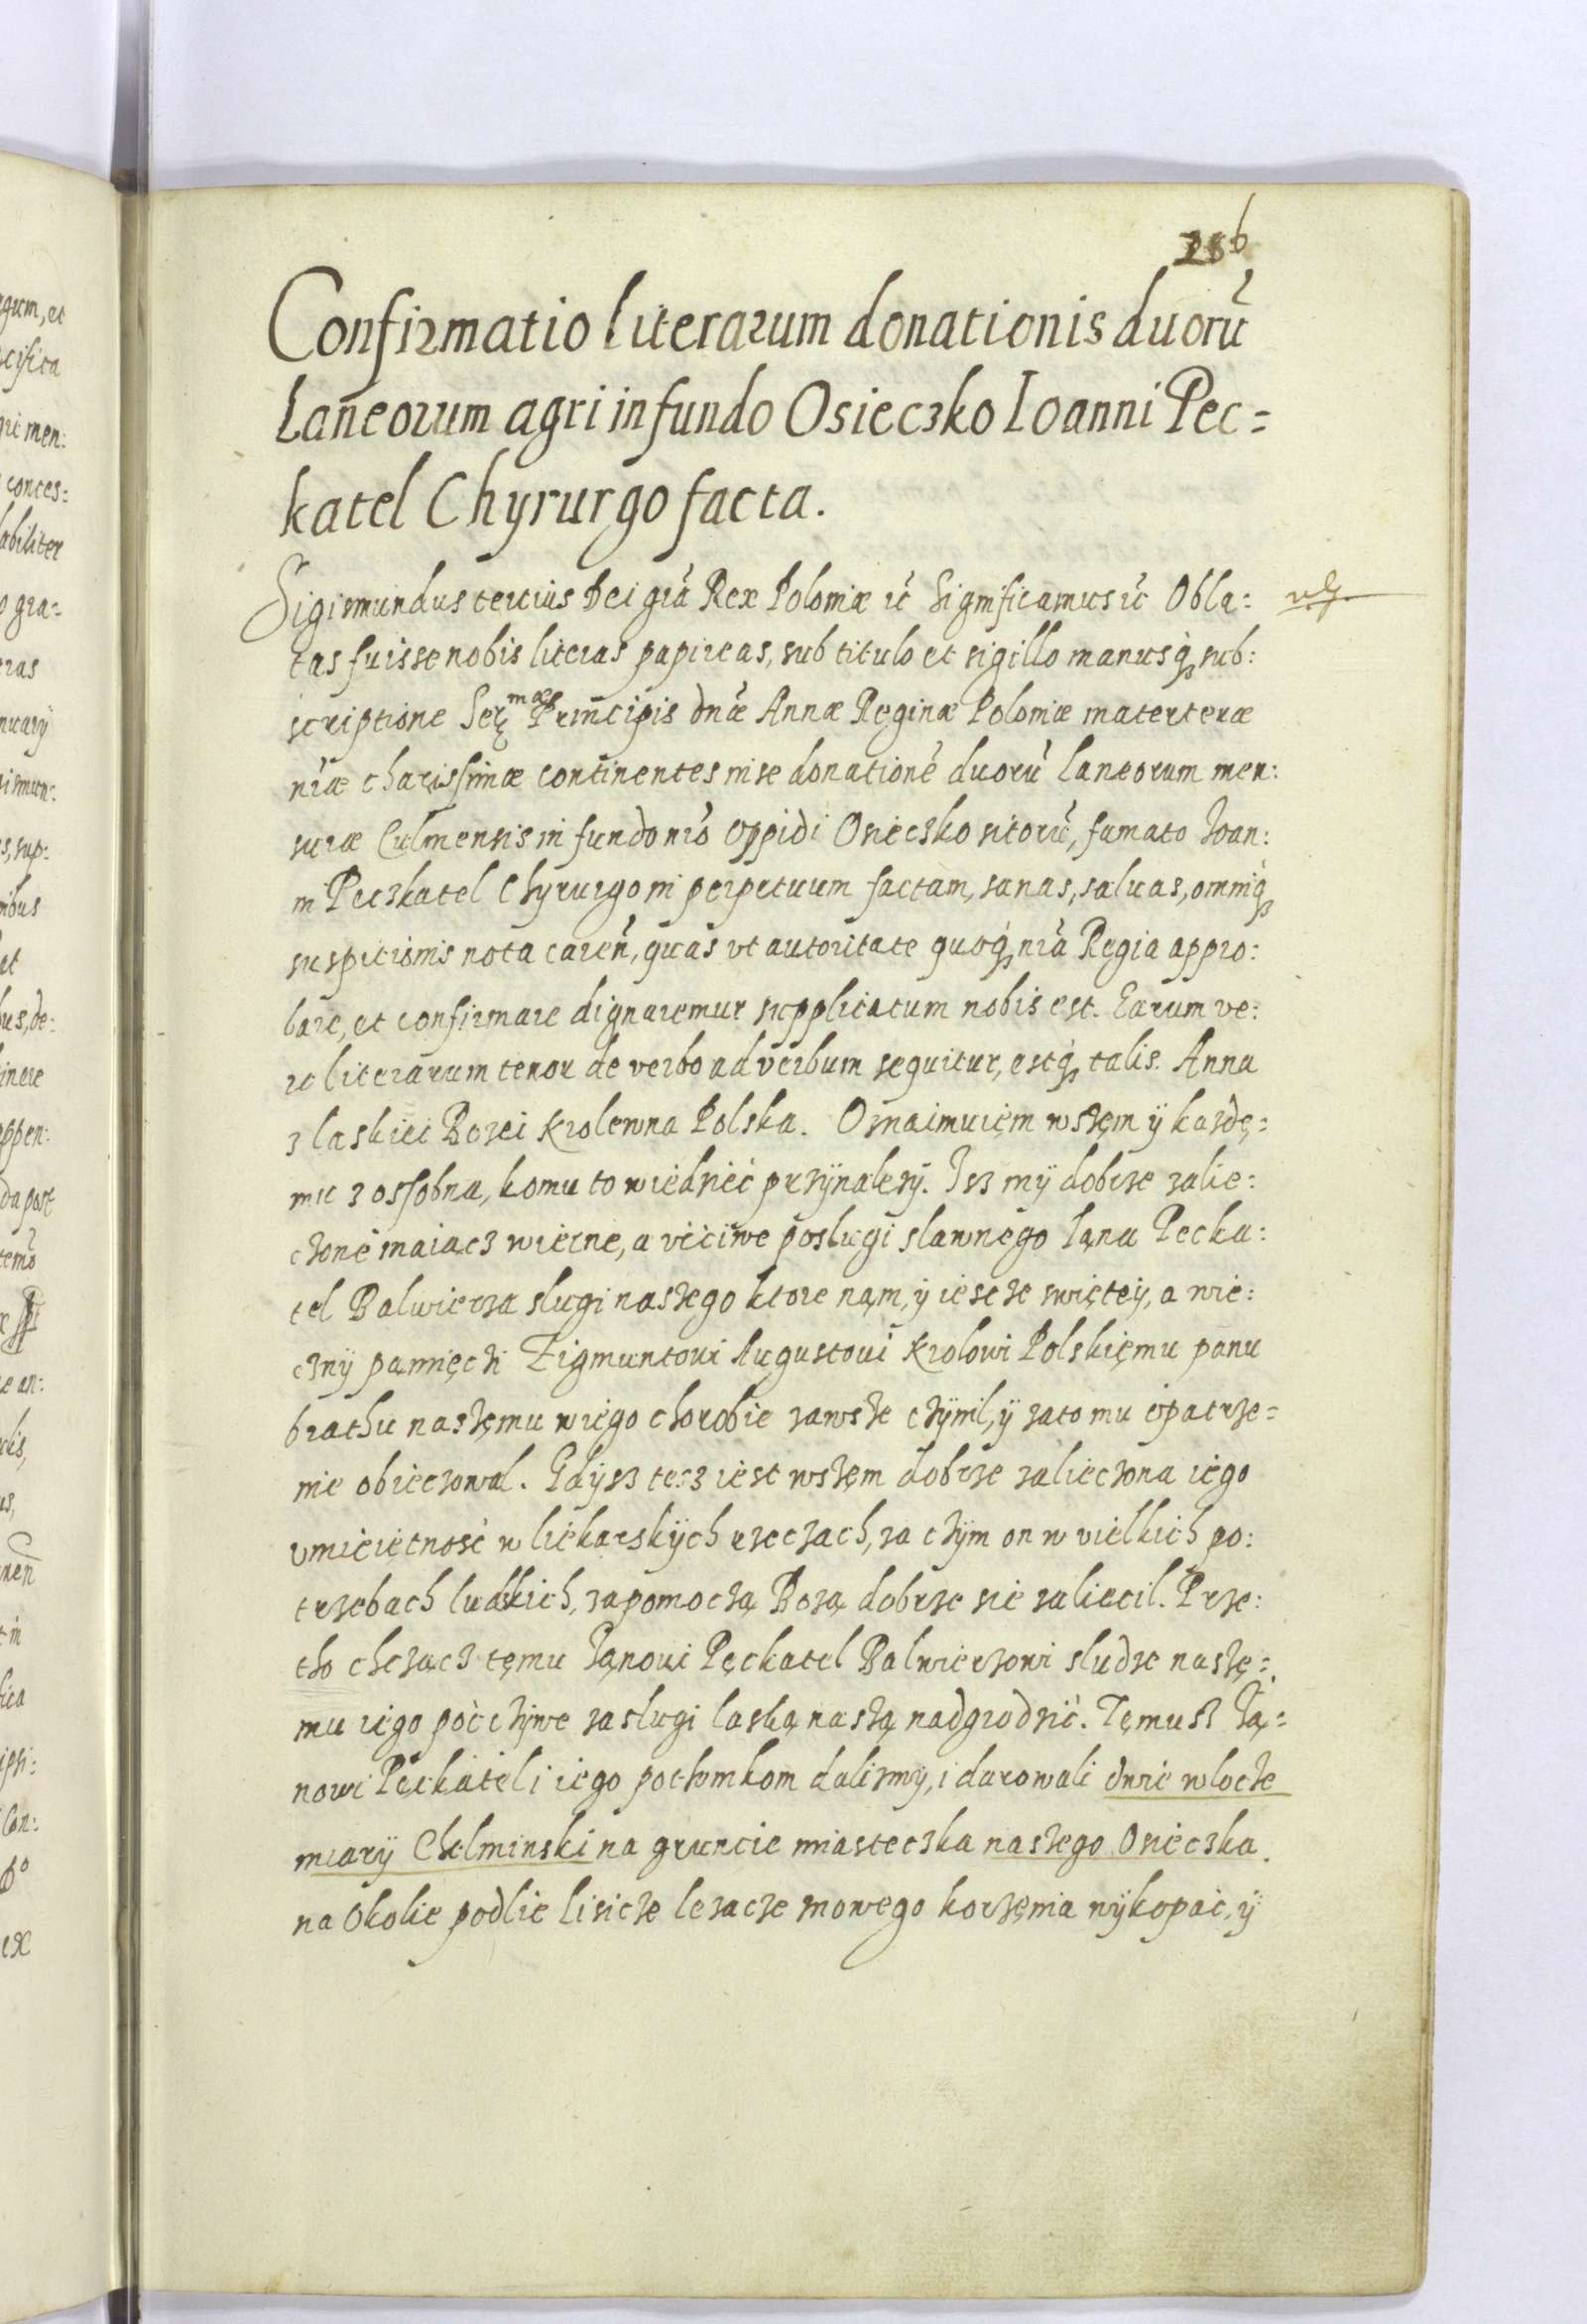 28b
Confirmatio literarum donationis duorū
Laneorum agri in fundo Osieczko Ioanni Pec=
katel Chyrurgo facta.
Sigismundus tertius Dei grā Rex Poloniæ &c Significamus &c Obla:
tas fuisse nobis literas papireas, sub titulo et sigillo manusq; sub:
scriptione Serᵐᵃᵉ Principis dnæ Annæ Reginæ Poloniæ materteræ
nr̄æ charissimæ continentes in se donationē duorū laneorum men:
suræ Culmensis in fundo nrō oppidi Osieczko sitorū, famato Ioan:
ni Peczkatel Chyrurgo in perpetuum factam, sanas, saluas, omniq;
suspitionis nota caren̄, quas vt autoritate quoq; nrā Regia appro:
bare, et confirmare dignaremur supplicatum nobis est. Earum ve:
ro literarum tenor de verbo ad verbum sequitur, estq; talis. Anna
z laskiei Bozei Krolewna Polska. Oznaimuięm wszęm ÿ kazdę=
mu z ossobna, komu to wiedzieć przÿnalezÿ. Isz mÿ dobrze zalie:
czone maiacz wierne, a vćciwe poslugi slawnego Iąna Pecka:
tel Balwierza slugi naszego ktore nąm, ÿ iescze swiętey, a wie:
cznÿ pamięczi Zigmuntowi Augustoui Krolowi Polskięmu panu
brathu naszęmu w iego chorobie zawsze czÿnil, ÿ za to mu opatrze=
nie obieczowal. Gdÿsz tesz iest wszęm dobrze zalieczona iego
vmieiętnosć w liekarskÿch rzeczach, za czÿm on w vielkich po:
trzebach ludzkich, za pomoczą Bozą dobrze sie zaliecil. Prze:
tho chcżącz tęmu Iąnoui Pęckatel Balwierzowi sludze naszę=
mu iego poćczÿwe zaslugi laską naszą nadgrodzić. Tęmusz Ią=
nowi Pęckatel i iego pothomkom dalismÿ, i darowali dwie wlocze
miarÿ Chelminski na gruncie miasteczka naszego Osieczka.
na Okolie podlie lisicze lezacze nowego korzęnia wÿkopać, ÿ